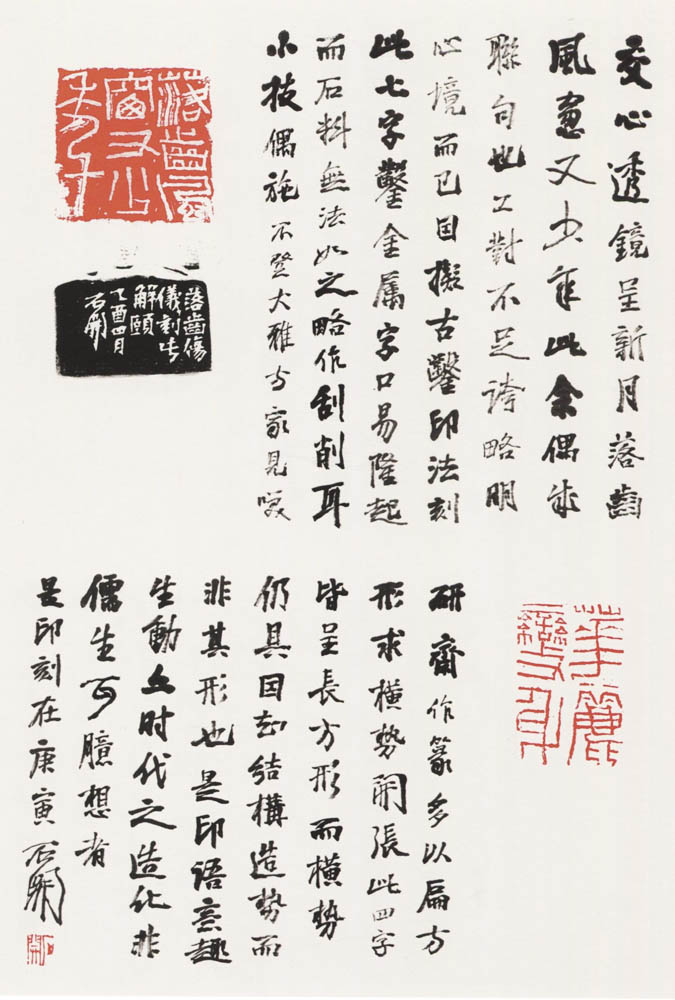 交心透鏡呈新月落齒
風窗又少年此余偶成
聯句也工對不足誇略明
心境而已因擬古鑿印法刻
此七字鑿金属字口易隆起
而石料無法如之略作刮削耳
小技偶施不登大雅方家見笑
落齒風窗又少年
落齒傷
儀刻此
解頤
丁酉四月
石開
華麗
變身
研齋作篆多以扁方
形求橫勢開張此四字
皆呈長方形而橫勢
仍具因知結構造勢而
非其形也是印語意趣
生動时代之造化非
儒生可臆想者
是印刻在庚寅石開
石開